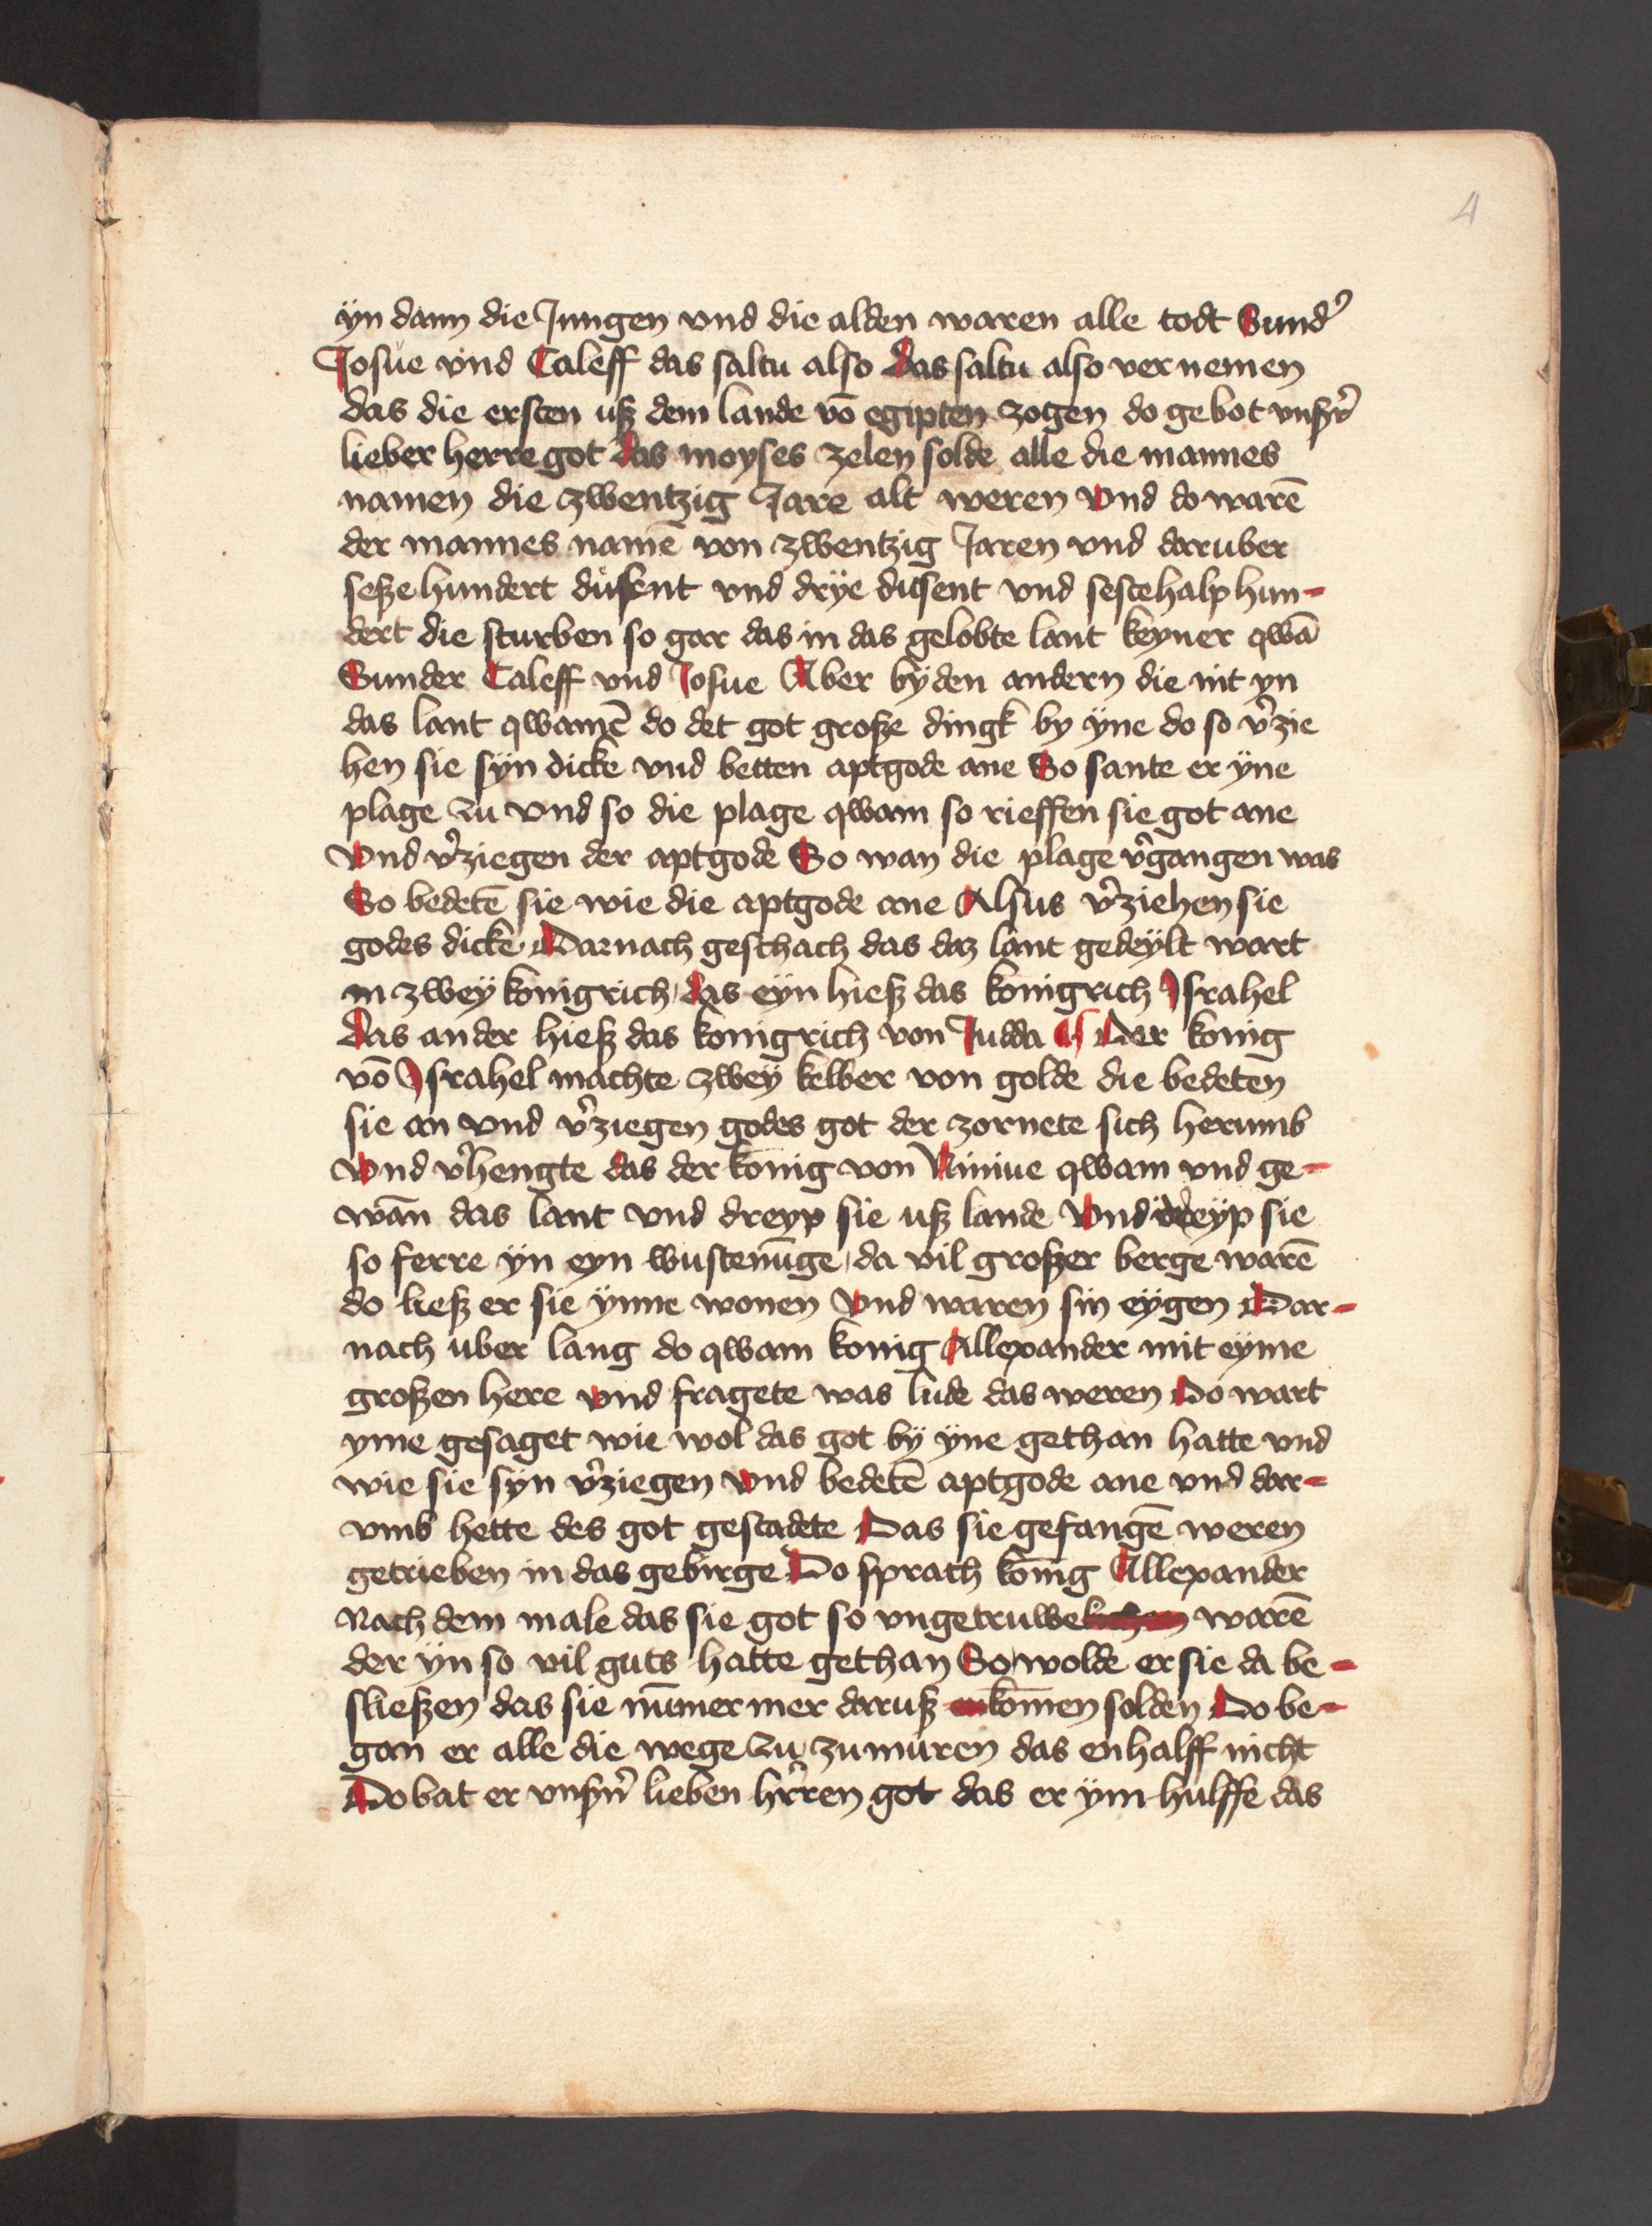 4
ÿn dann die Jungen vnd die alden waren alle todt Sund᾽
Josue vnd Caleff das saltu also das saltu also vernemen
das die ersten uß dem lande vō egipten zogen do gebot vnß᾽
lieber herre got das moyses zelen solde alle die mannes
namen die zwentzig Jare alt weren vnd do warē
der mannes namē von zwentzig Jaren vnd daruber
seße hundert dusent vnd drÿe dusent vnd sestehalp hun-
dert die sturben so gar das in das gelobte lant keyner qwā
Sunder Caleff vnd Josue Aber bÿ den andern die nit yn
das lant qwamē do det got große dingk by ÿne do so v᾽zie
hen sie sÿn dicke vnd betten aptgode ane So sante er ÿne
plage zu vnd so die plage qwam so rieffen sie got ane
vnd v᾽ziegen der aptgode So wan die plage v᾽gangen was
So bedetē sie wie die aptgode ane Alsus v᾽ziehen sie
godes dicke Darnach geschach das daz lant gedeÿlt wart
in zweÿ konigrich das eyn hieß das konigrich Israhel
das ander hieß das konigrich von Judda ¶ Der konig
vō Israhel machte zweÿ kelber von golde die bedeten
sie an vnd v᾽ziegen godes got der zornete sich herumb
vnd v᾽hengte das der konig von Niniue qwam vnd ge-
wān das lant vnd dreyp sie uß lande vnd dreÿp sie
so ferre ÿn eyn wustenūge da vil großer berge warē
do ließ er sie ÿnne wonen vnd waren sin eÿgen Dar-
nach uber lang do qwam konig Allexander mit eÿme
großen here vnd fragete was lude das weren Do wart
yme gesaget wie wol das got bÿ ÿne gethan hatte vnd
wie sie sÿn v᾽ziegen vnd bedetē aptgode ane vnd dar-
vmb hette des got gestadete Das sie gefangē weren
getrieben in das gebirge Do sprach konig Allexander
Nach dem male das sie got so vngetruwelichen warē
der ÿn so vil guts hatte gethan So wolde er sie da be-
sließen das sie nūmer mer daruß en komen solden Do be-
gan er alle die wege zu zu muren das enhalff nicht
Do bat er vnsn᾽ lieben h᾽rren got das er ÿm hulffe das